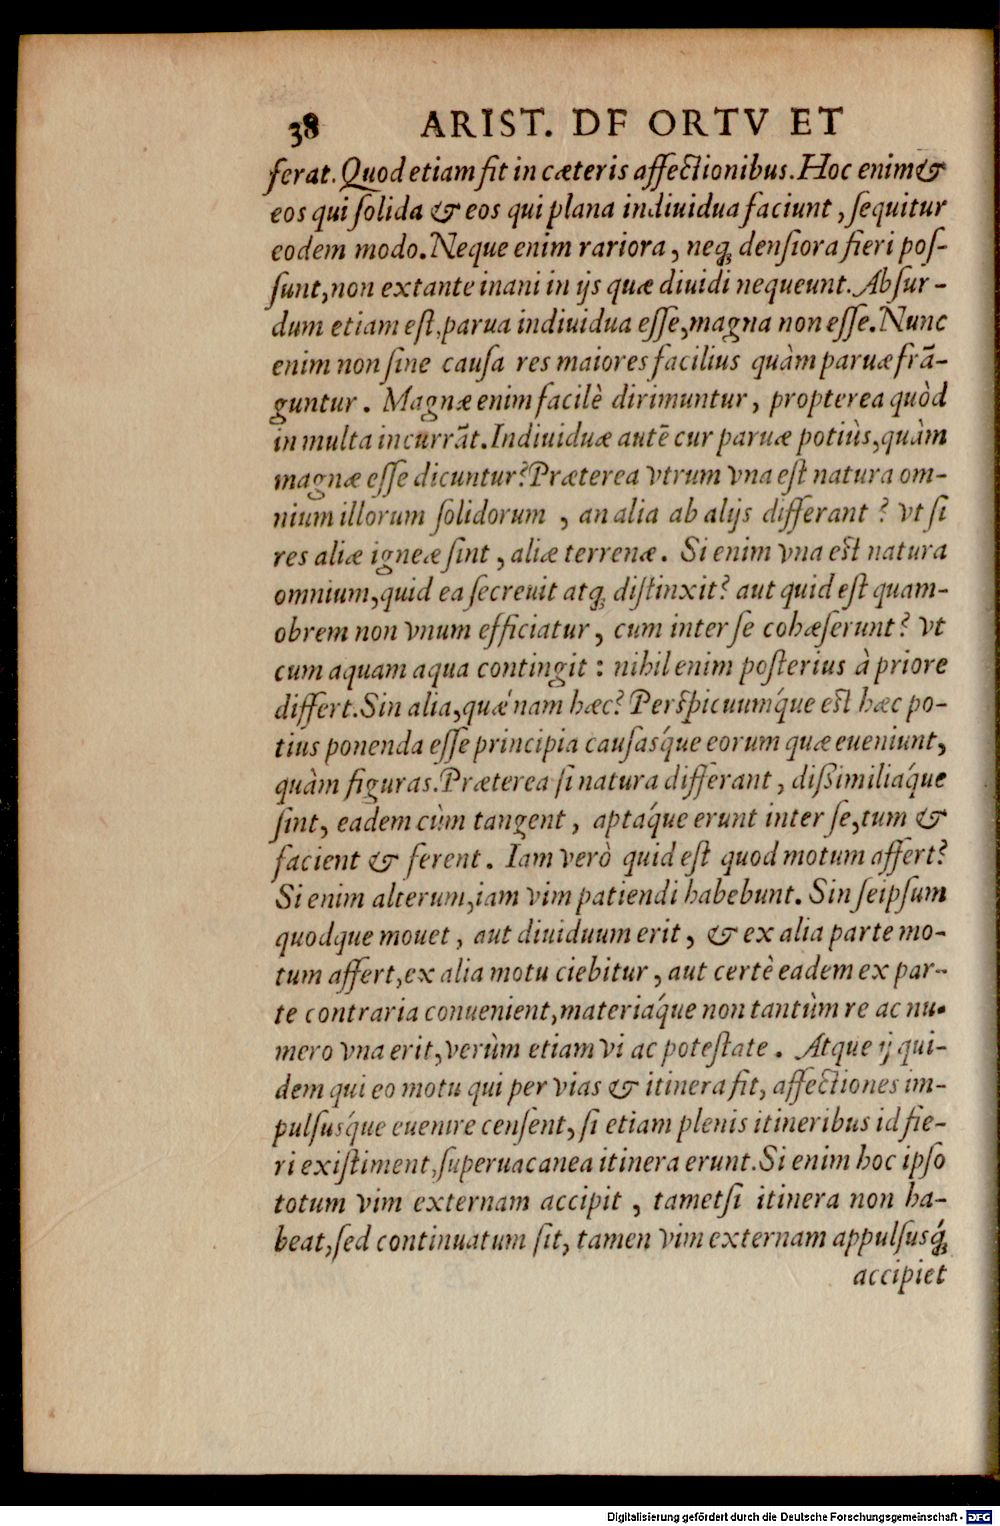 38 ARIST. DE ORTV ET
ferat. Quod etiam fit in cæteris affectionibus. Hoc enim &
eos qui ſolida & eos qui plana indiuidua faciunt, ſequitur
eodem modo. Neque enim rariora, neq; denſiora fieri poſ-
ſunt, non extante inani in ijs quæ diuidi nequeunt. Abſur-
dum etiam eſt, parua indiuidua eſſe, magna non eſſe. Nunc
enim non ſine cauſa res maiores facilius quàm paruæ frā-
guntur. Magnæ enim facilè dirimuntur, propterea quòd
in multa incurrāt. Indiuiduæ autē cur paruæ potiùs, quàm
magnæ eſſe dicuntur? Præterea vtrum vna eſt natura om-
nium illorum ſolidorum, an alia ab alijs differant? vt ſi
res aliæ igneæ ſint, aliæ terrenæ. Si enim vna eſt natura
omnium, quid ea ſecreuit atq; diſtinxit? aut quid eſt quam-
obrem non vnum efficiatur, cum inter ſe cohæſerunt? vt
cum aquam aqua contingit: nihil enim poſterius à priore
differt. Sin alia, quǽnam hæc? Perſpicuumq́ue eſt hæc po-
tius ponenda eſſe principia cauſasq́ue eorum quæ eueniunt,
quàm figuras. Præterea ſi natura differant, dißimiliaq́ue
ſint, eadem cùm tangent, aptaq́ue erunt inter ſe, tum &
facient & ferent. Iam verò quid eſt quod motum affert?
Si enim alterum, iam vim patiendi habebunt. Sin ſeipſum
quodque mouet, aut diuiduum erit, & ex alia parte mo-
tum affert, ex alia motu ciebitur, aut certè eadem ex par-
te contraria conuenient, materiaq́ue non tantùm re ac nu-
mero vna erit, verùm etiam vi ac poteſtate. Atque ij qui-
dem qui eo motu qui per vias & itinera fit, affectiones im-
pulſusq́ue euenire cenſent, ſi etiam plenis itineribus id fie-
ri exiſtiment, ſuperuacanea itinera erunt. Si enim hoc ipſo
totum vim externam accipit, tametſi itinera non ha-
beat, ſed continuatum ſit, tamen vim externam appulſusq́;
accipiet
Digitalisierung gefördert durch die Deutsche Forschungsgemeinschaft - DFG